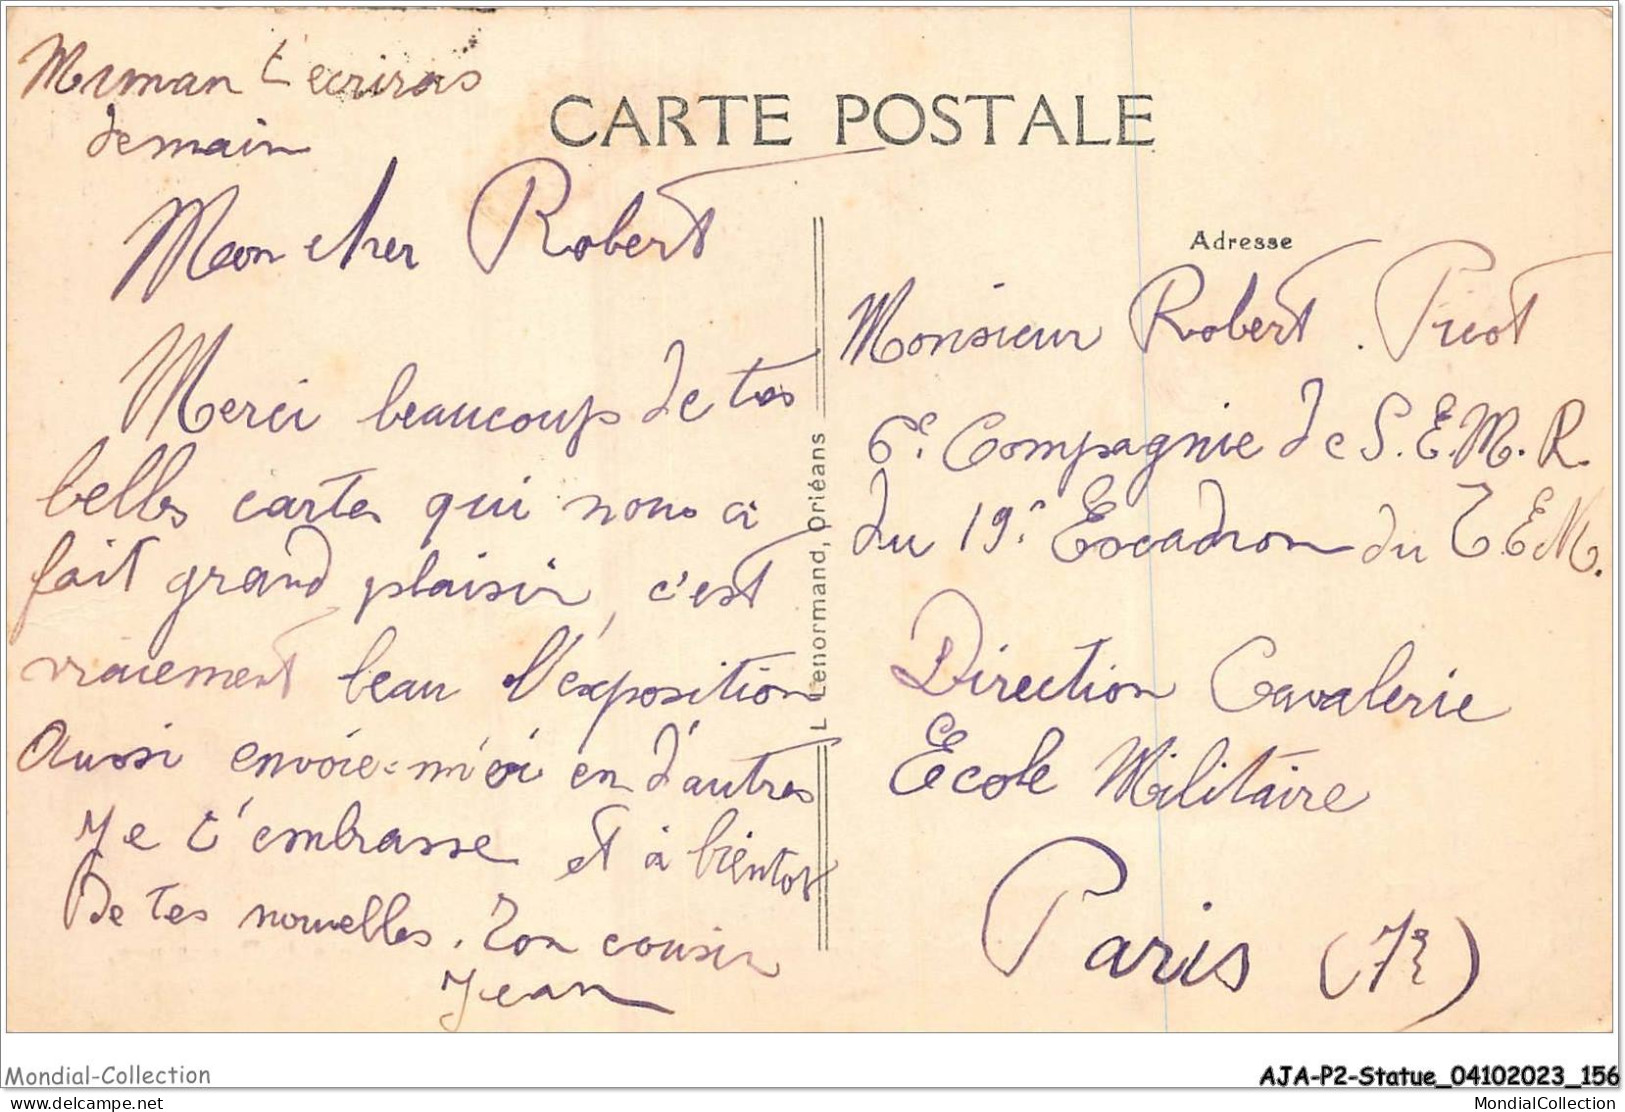 Maman t'ecriras
demain
CARTE POSTALE
Mon cher Robert
Merci beaucoup de tes
belles cartes qui nous a
fait grand plaisir, c'est
vraiement beau l'éxposition
Aussi envoie-m'oi en d'autres
Je t'embrasse et à bientot
De tes nouvelles. Ton cousin
Jean
L. Lenormand, Orléans
Adresse
Monsieur Robert Picot
6e Compagnie de S.E.M.R.
du 19e Escadron du T.E.M.
Direction Cavalerie
Ecole Militaire
Paris (7e)
Mondial-Collection
AJA-P2-Statue_04102023_156
delcampe.net
MondialCollection